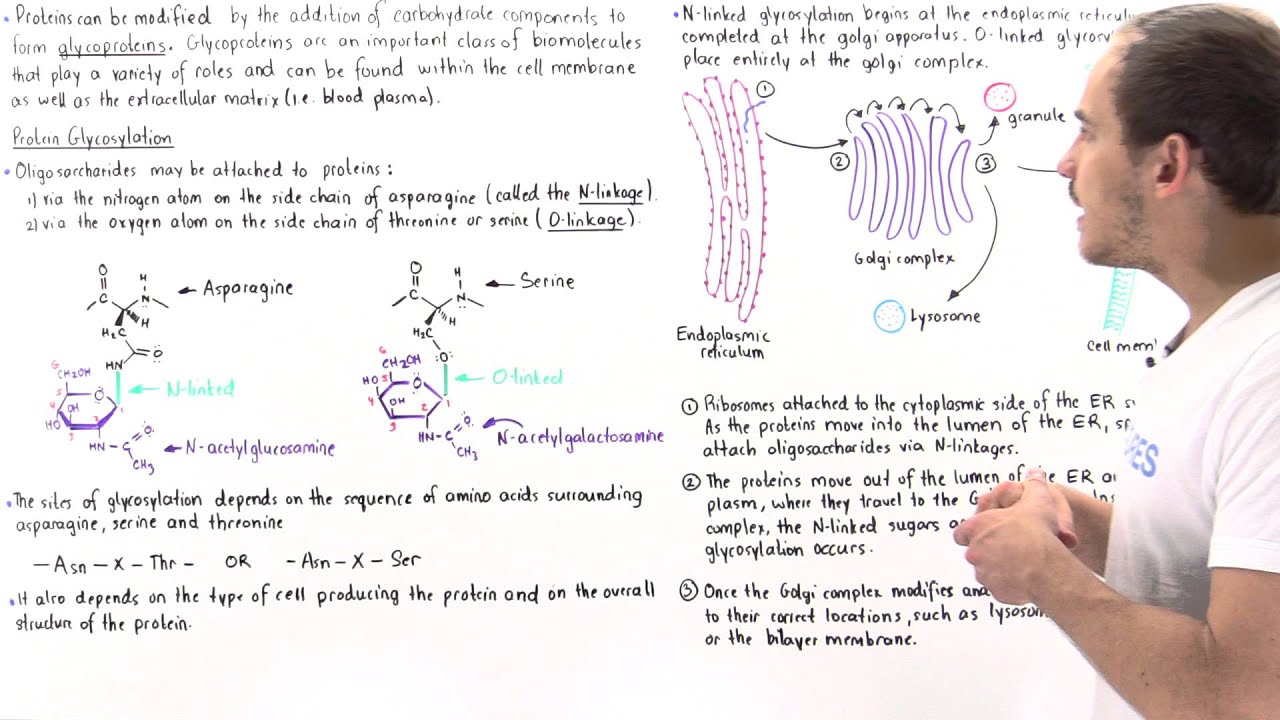 • Proteins can be modified by the addition of carbohydrate components to
form glycoproteins. Glycoproteins are an important class of biomolecules
that play a variety of roles and can be found within the cell membrane
as well as the extracellular matrix (i.e. blood plasma).
Protein Glycosylation
• Oligosaccharides may be attached to proteins:
1) via the nitrogen atom on the side chain of asparagine (called the N-linkage).
2) via the oxygen atom on the side chain of threonine or serine (O-linkage).
O
H
C
N
← Asparagine
H
H₂C
O
HN
6
CH₂OH
5
O
← N-linked
4
OH
1
HO
3
2
HN-C
O
CH₃
← N-acetylglucosamine
O
H
C
N
← Serine
H
H₂C
:O:
6
CH₂OH
HO
5
O
← O-linked
4
OH
1
3
2
HN-C
O
CH₃
N-acetylgalactosamine
• The sites of glycosylation depends on the sequence of amino acids surrounding
asparagine, serine and threonine
— Asn — X — Thr — OR — Asn — X — Ser
• It also depends on the type of cell producing the protein and on the overall
structure of the protein.
• N-linked glycosylation begins at the endoplasmic
completed at the golgi apparatus. O-linked
place entirely at the golgi complex.
1
granule
2
3
Golgi complex
Lysosome
Endoplasmic
reticulum
Cell
① Ribosomes attached to the cytoplasmic side of the ER
As the proteins move into the lumen of the ER,
attach oligosaccharides via N-linkages.
② The proteins move out of the lumen of ER
plasm, where they travel to the
complex, the N-linked sugars
glycosylation occurs.
③ Once the Golgi complex modifies
to their correct locations, such as
or the bilayer membrane.